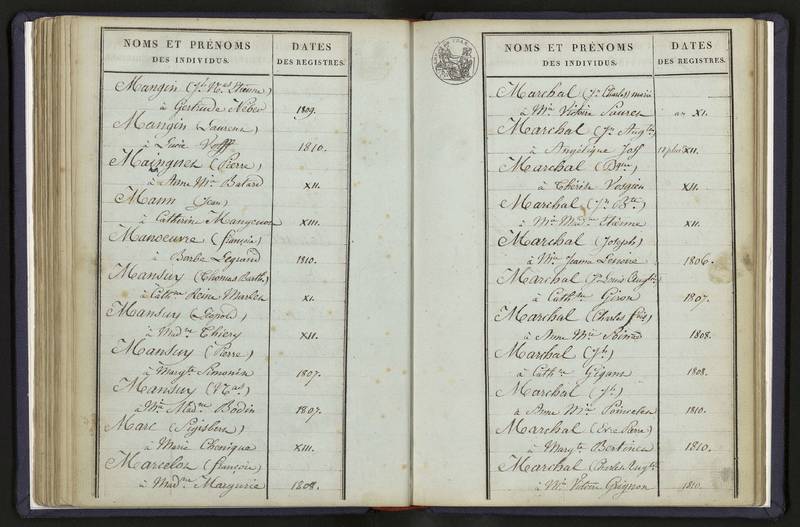 NOMS ET PRÉNOMS
DES INDIVIDUS.
DATES
DES REGISTRES.
Mangin (Jh Nas Etienne)
à Gertrude Neben 1809.
Mangin (Laurent)
à Lucie Volff 1810.
Maingnet (Pierre)
à Anne Mie Batard XII.
Mann (Jean)
à Catherine XIII.
Manoeuvre (françois)
à Barbe Legrand 1810.
Mansuy (Thomas Barth.)
à Cathne Reine XI.
Mansuy (Léopold)
à Madne Thiery XII.
Mansuy (Pierre)
à Margte Simonin 1807.
Mansuy (Nas)
à Mie Madne Bodin 1807.
Marc (Sigisbert)
à Marie XIII.
Marcelot (françois)
à Madne Margurie 1808.
NOMS ET PRÉNOMS
DES INDIVIDUS.
DATES
DES REGISTRES.
Marchal (Jn Charles) marié
à Mie Victoire an XI.
Marchal (Jn Augtn)
à Angélique XII.
Marchal (Dque)
à Thérèse Vosgien XII.
Marchal (Jn Bte)
à Mie Madne Etienne XII.
Marchal (Joseph)
à Mie Jeanne Lenoire 1806.
Marchal (Louis Augtn)
à Cathne Giron 1807.
Marchal (Charles fois)
à Anne Mie 1808.
Marchal (Jh)
à Cathne Gigant 1808.
Marchal (Jh)
à Anne Mie 1810.
Marchal (Pierre)
à Margte 1810.
Marchal (Charles Augte)
à Mie Victoire Grignon 1810.